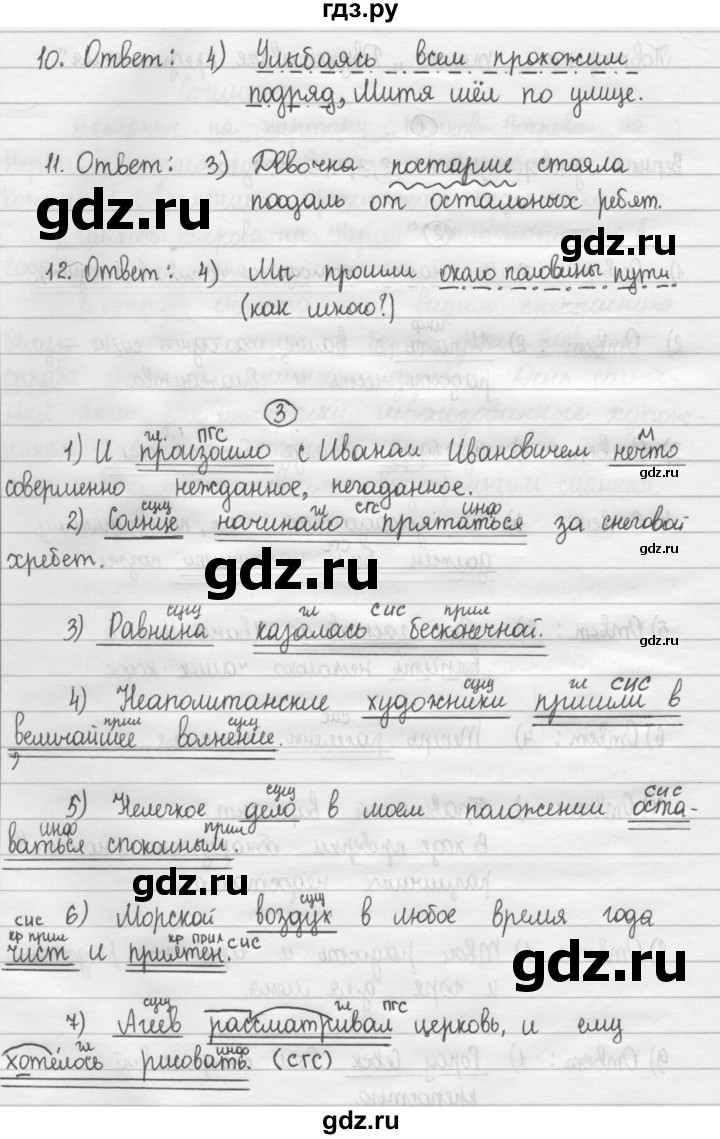 гдз.ру
10. Ответ: 4) Улыбаясь всем прохожим
подряд, Митя шёл по улице.
11. Ответ: 3) Девочка постарше стояла
поодаль от остальных ребят.
gdz.ru gdz.ru
12. Ответ: 4) Мы прошли около половины пути.
(как много?)
gdz.ru
3
гл. ПГС м
1) И произошло с Иваном Ивановичем нечто
совершенно нежданное, негаданное.
сущ гл СГС инф
2) Солнце начинало прятаться за снеговой
хребет.
gdz.ru gdz.ru
сущ гл СИС прил
3) Равнина казалась бесконечной.
gdz.ru
сущ гл СИС
4) Неаполитанские художники пришли в
прил сущ
величайшее волнение.
gdz.ru
сущ СИС
5) Нелегкое дело в моем положении оста-
инф прил
ваться спокойным.
gdz.ru
сис сущ
6) Морской воздух в любое время года
кр прил кр прил СИС
чист и приятен.
gdz.ru
сущ гл ПГС
7) Агеев рассматривал церковь, и ему
гл инф
хотелось рисовать. (СГС)
gdz.ru
gdz.ru